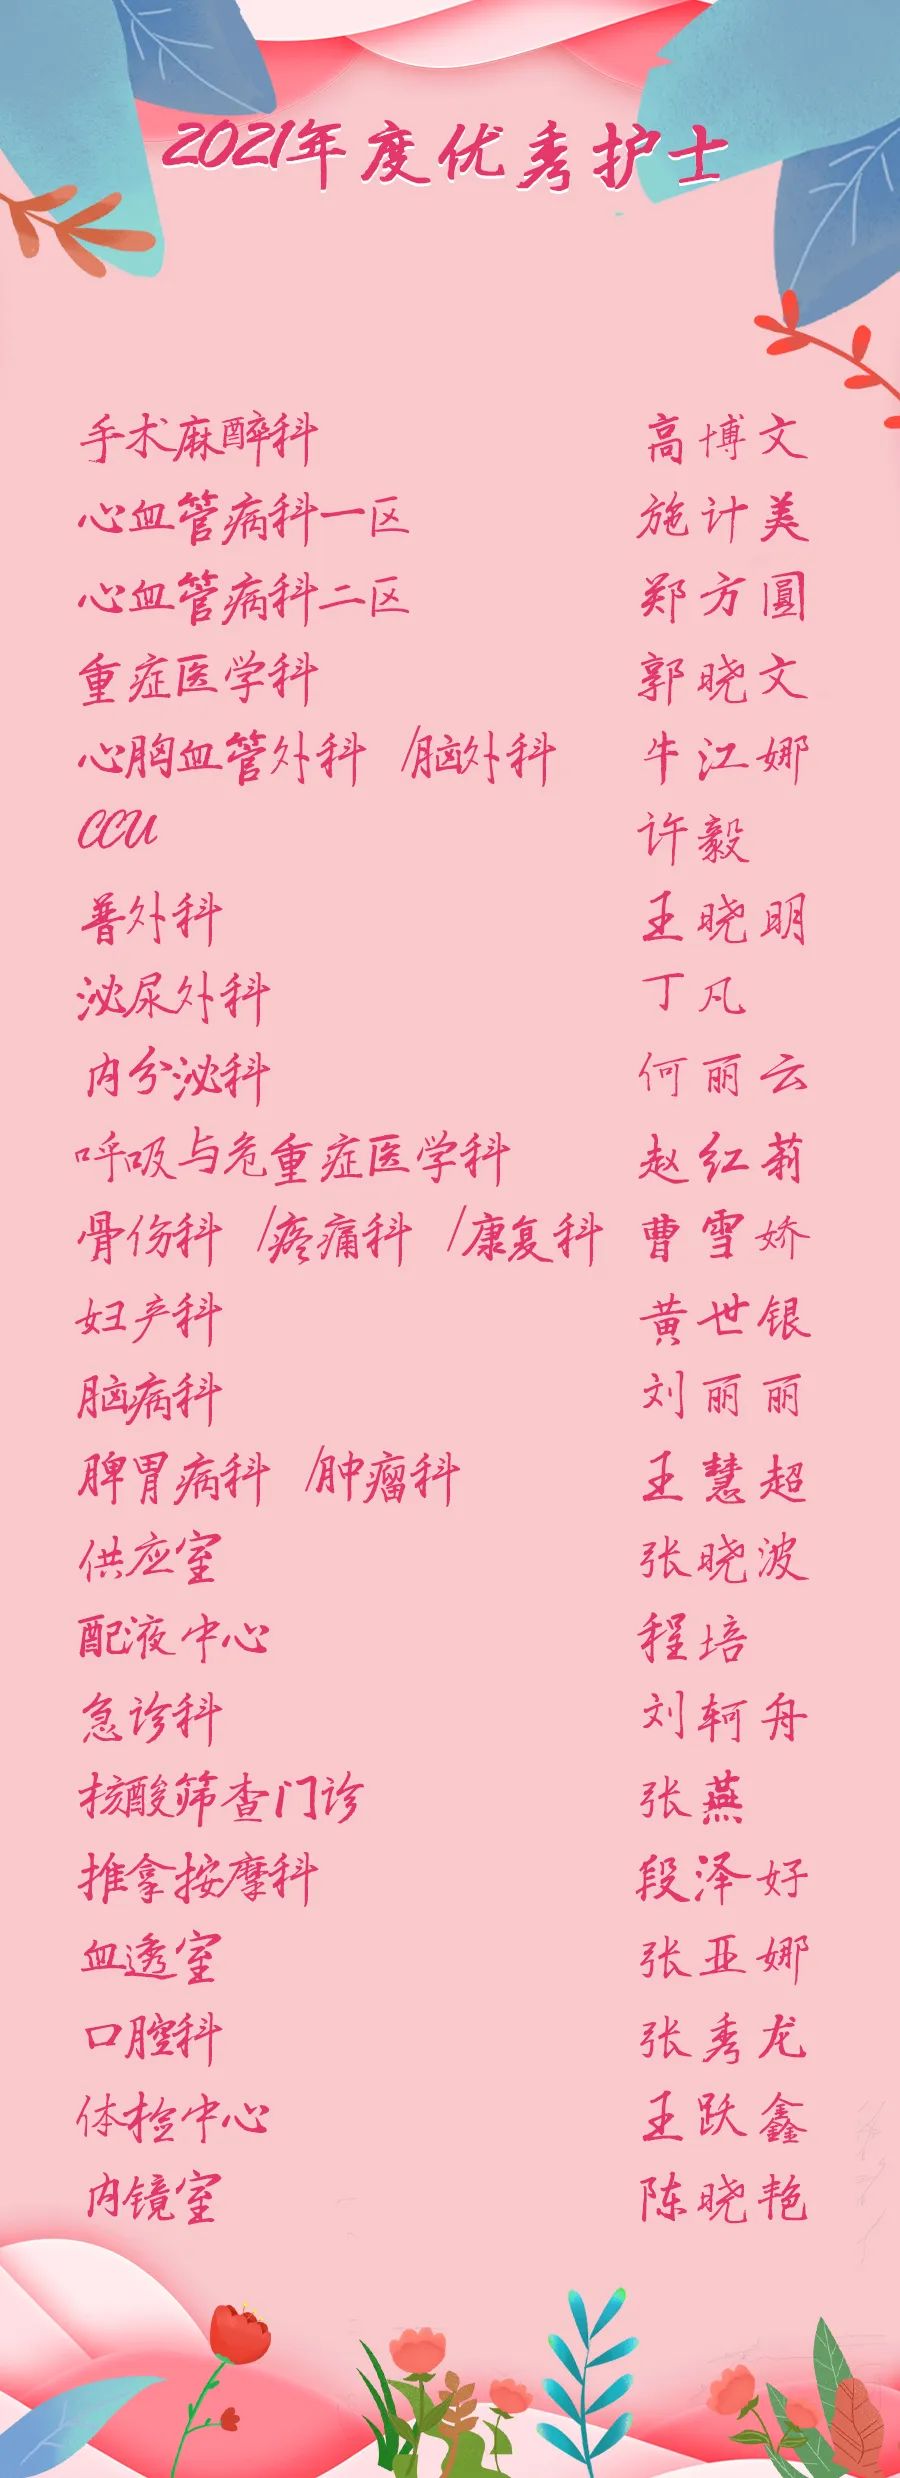 2021年度优秀护士
手术麻醉科 高博文
心血管病科一区 施计美
心血管病科二区 郑方圆
重症医学科 郭晓文
心胸血管外科 /脑外科 牛江娜
CCU 许毅
普外科 王晓明
泌尿外科 丁凡
内分泌科 何丽云
呼吸与危重症医学科 赵红莉
骨伤科 /疼痛科 /康复科 曹雪娇
妇产科 黄世银
脑病科 刘丽丽
脾胃病科 /肿瘤科 王慧超
供应室 张晓波
配液中心 程培
急诊科 刘轲舟
核酸筛查门诊 张燕
推拿按摩科 段泽好
血透室 张亚娜
口腔科 张秀龙
体检中心 王跃鑫
内镜室 陈晓艳